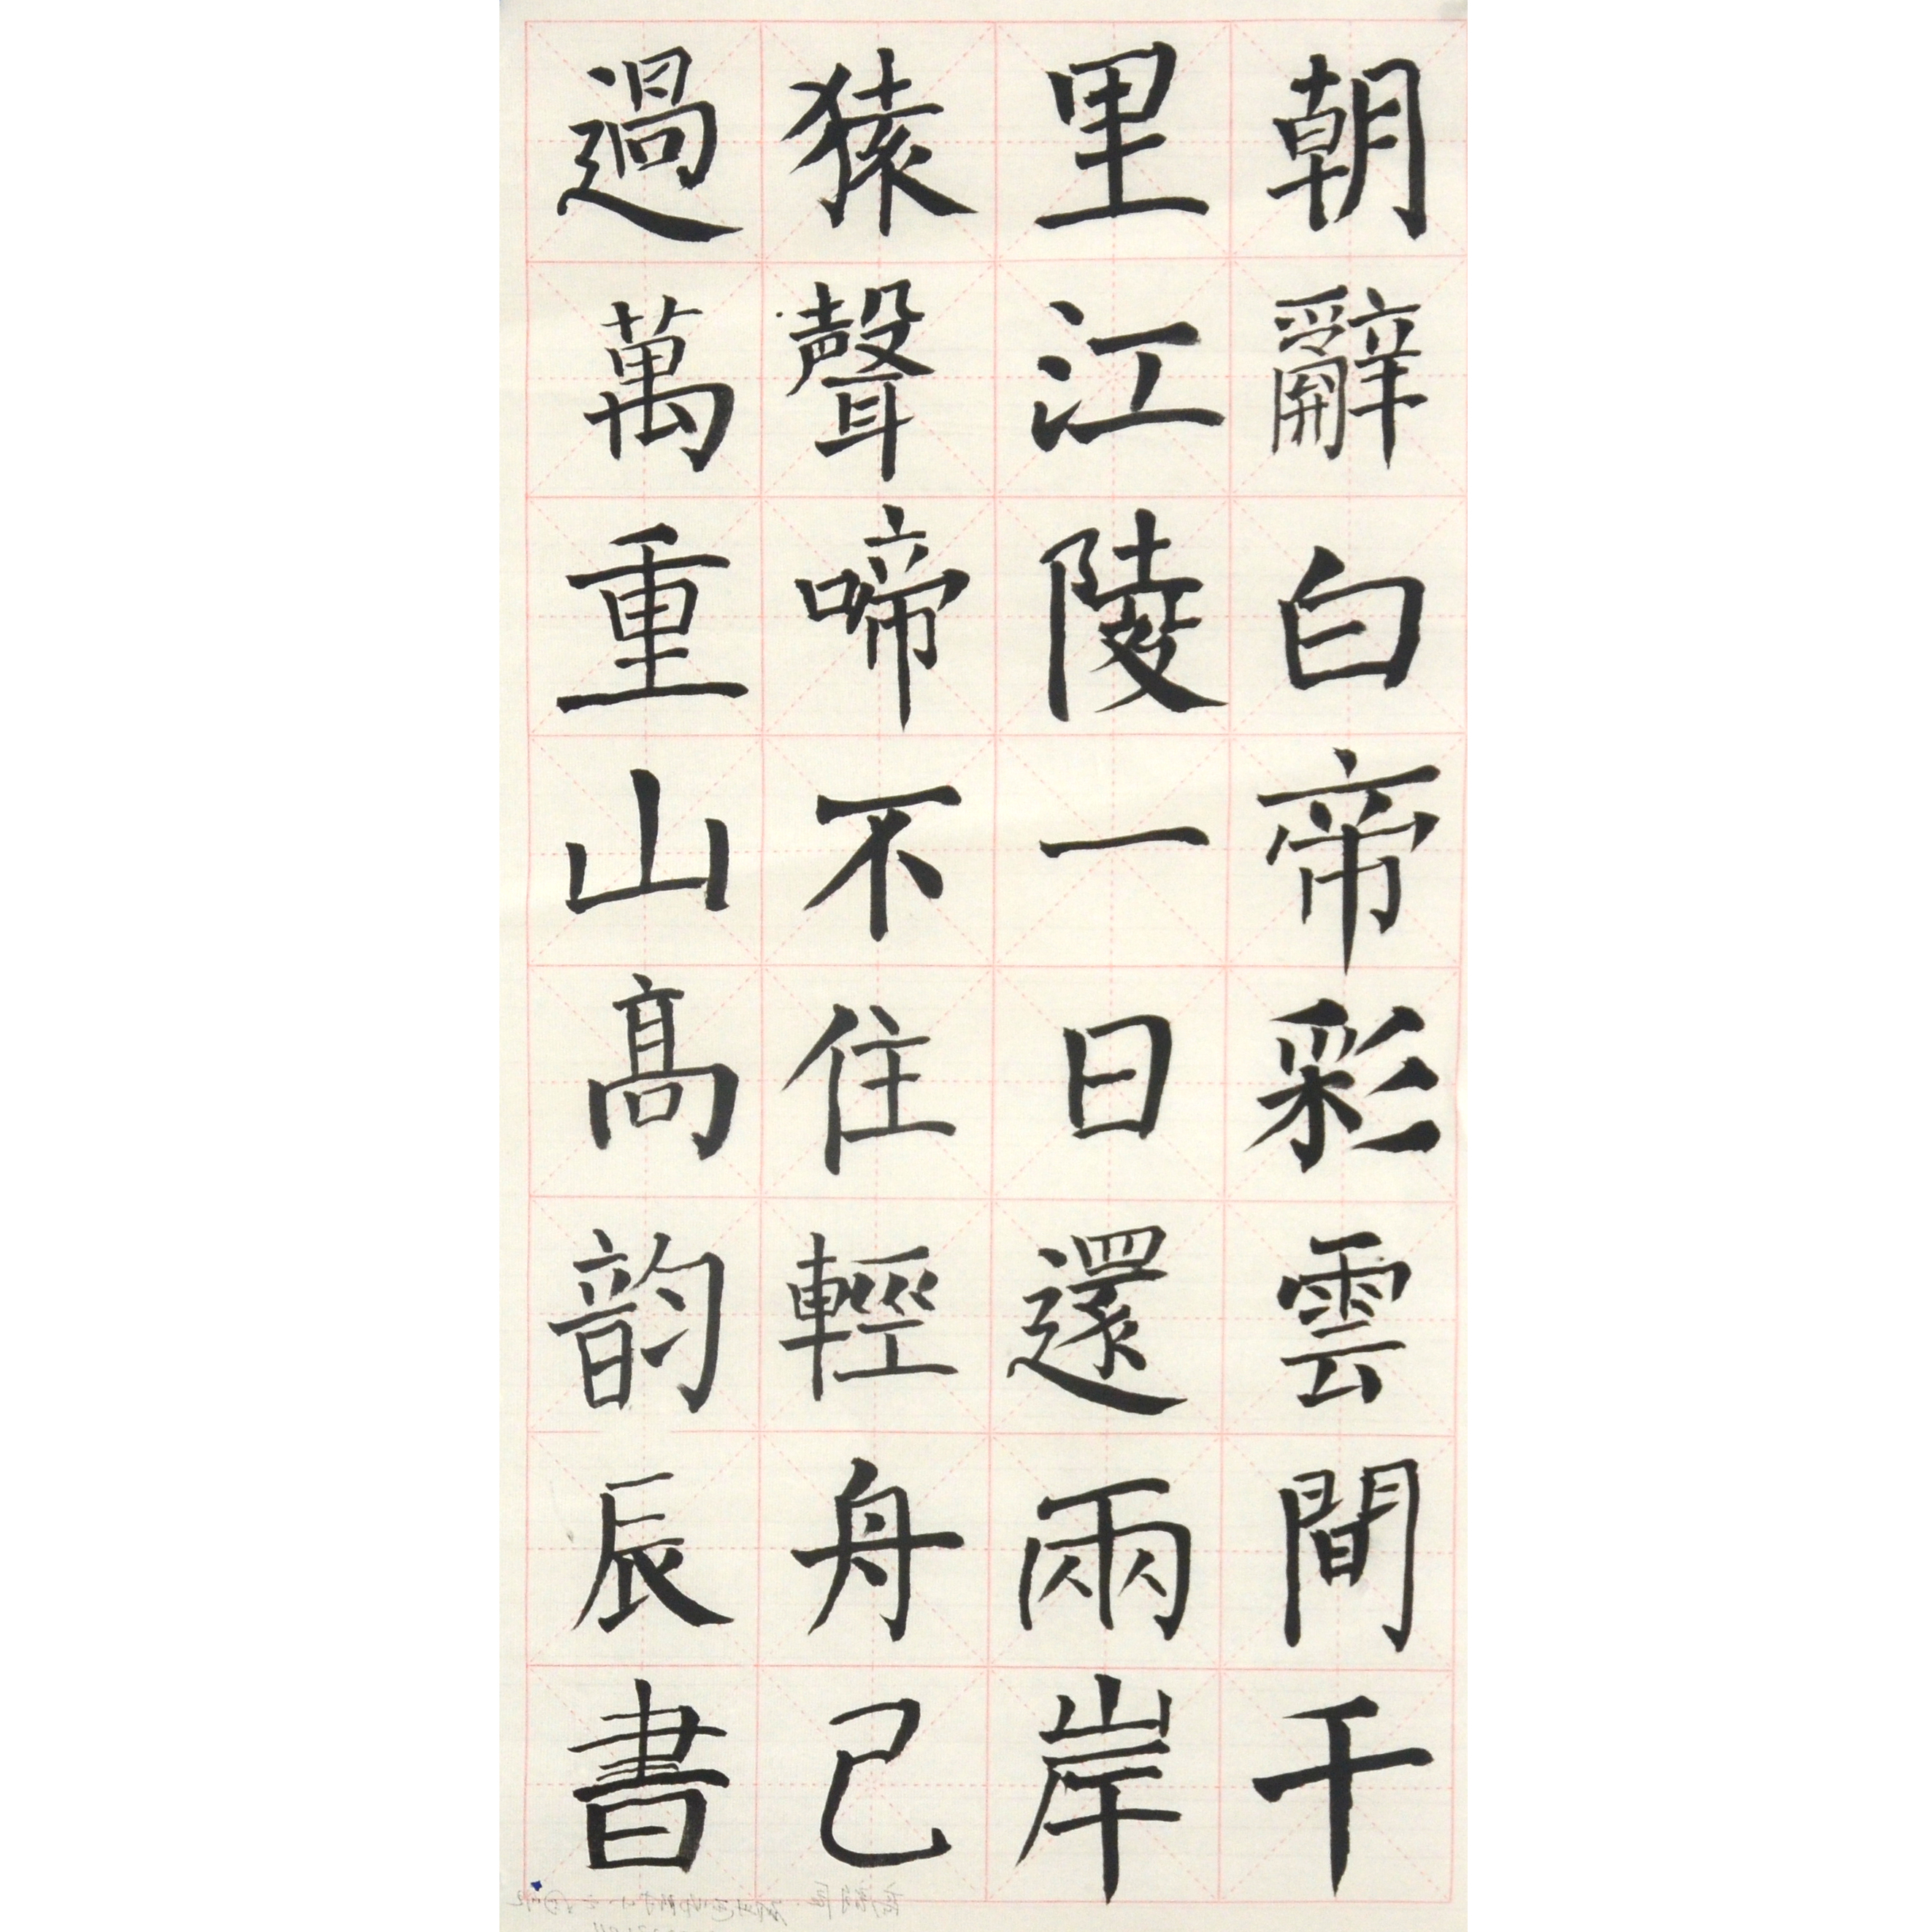 朝辭白帝彩雲間千
里江陵一日還兩岸
猿聲啼不住輕舟已
過萬重山高韵辰書